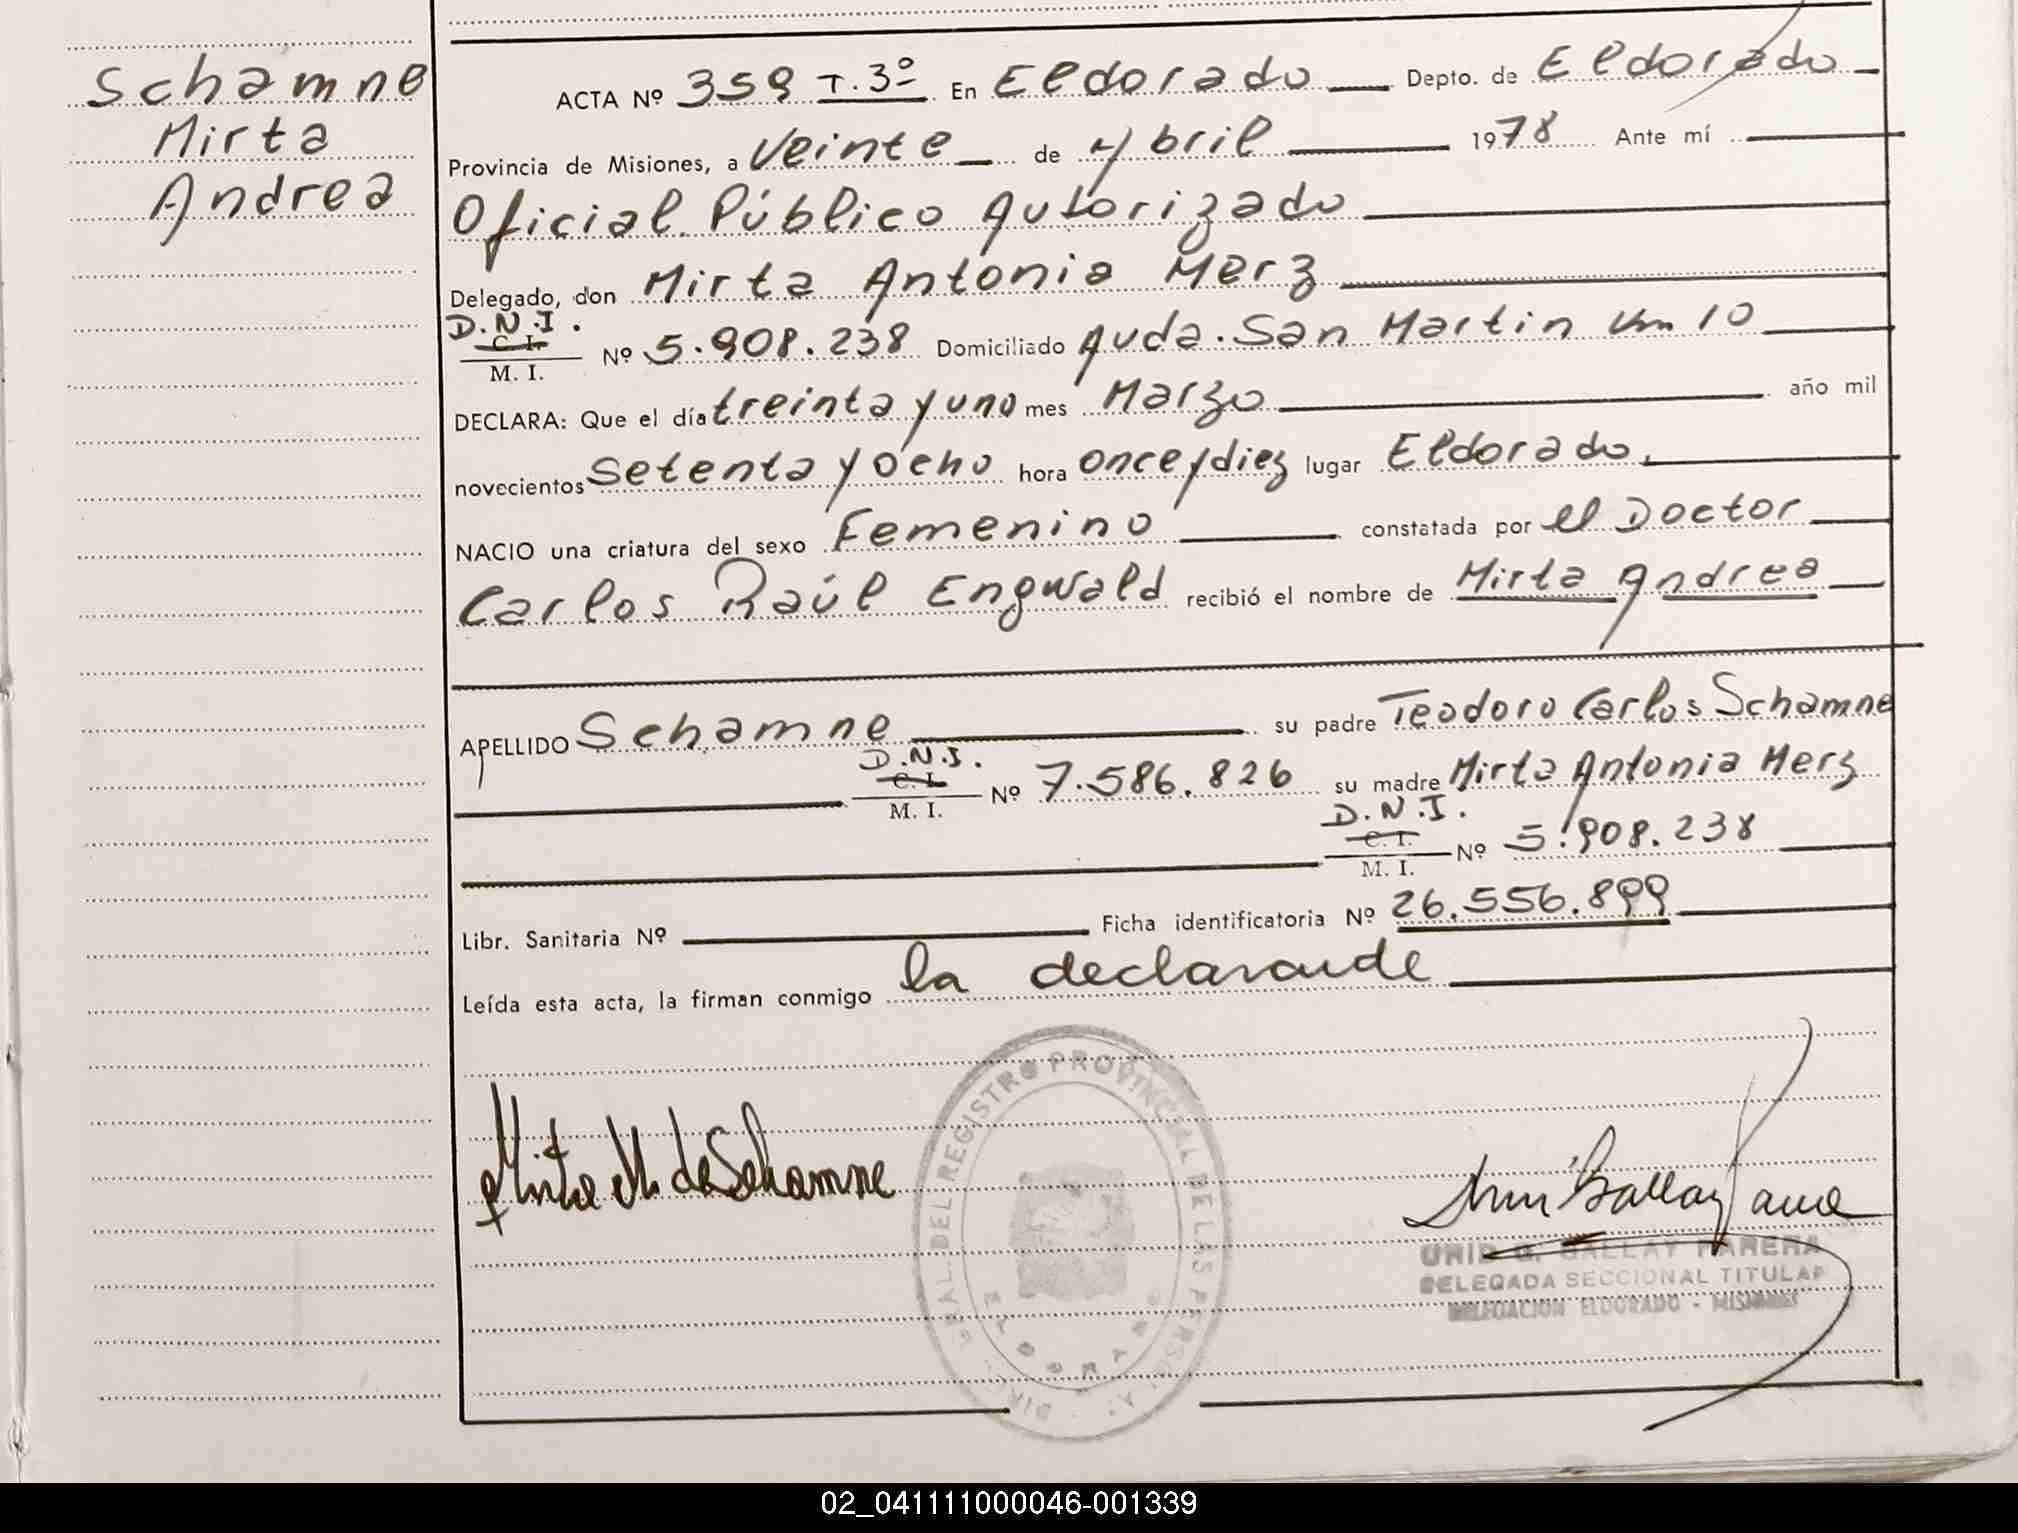 Schamne
Mirta
Andrea
ACTA Nº 359 T.3º En Eldorado Depto. de Eldorado
Provincia de Misiones, a veinte de Abril 1978 Ante mí
Oficial Público Autorizado
Delegado, don Mirta Antonia Merz
D.N.I.
C. I.
M. I.
Nº 5.908.238 Domiciliado Avda. San Martin Km 10
DECLARA: Que el día treinta y uno mes Marzo año mil
novecientos Setenta y Ocho hora once y diez lugar Eldorado.
NACIO una criatura del sexo Femenino constatada por el Doctor
Carlos Raúl Engwald recibió el nombre de Mirta Andrea
APELLIDO Schamne su padre Teodoro Carlos Schamne
D.N.I.
C. I.
M. I.
Nº 7.586.826 su madre Mirta Antonia Merz
D.N.I.
C. I.
M. I.
Nº 5.908.238
Libr. Sanitaria Nº Ficha identificatoria Nº 26.556.899
Leída esta acta, la firman conmigo la declarande
Mirta M. de Schamne
DIREC. GRAL. DEL REGISTRO PROVINCIAL DE LAS PERSONAS
ELDORADO
G. BALLAY PARERA
DELEGADA SECCIONAL TITULAR
DELEGACION ELDORADO - MISIONES
02_041111000046-001339